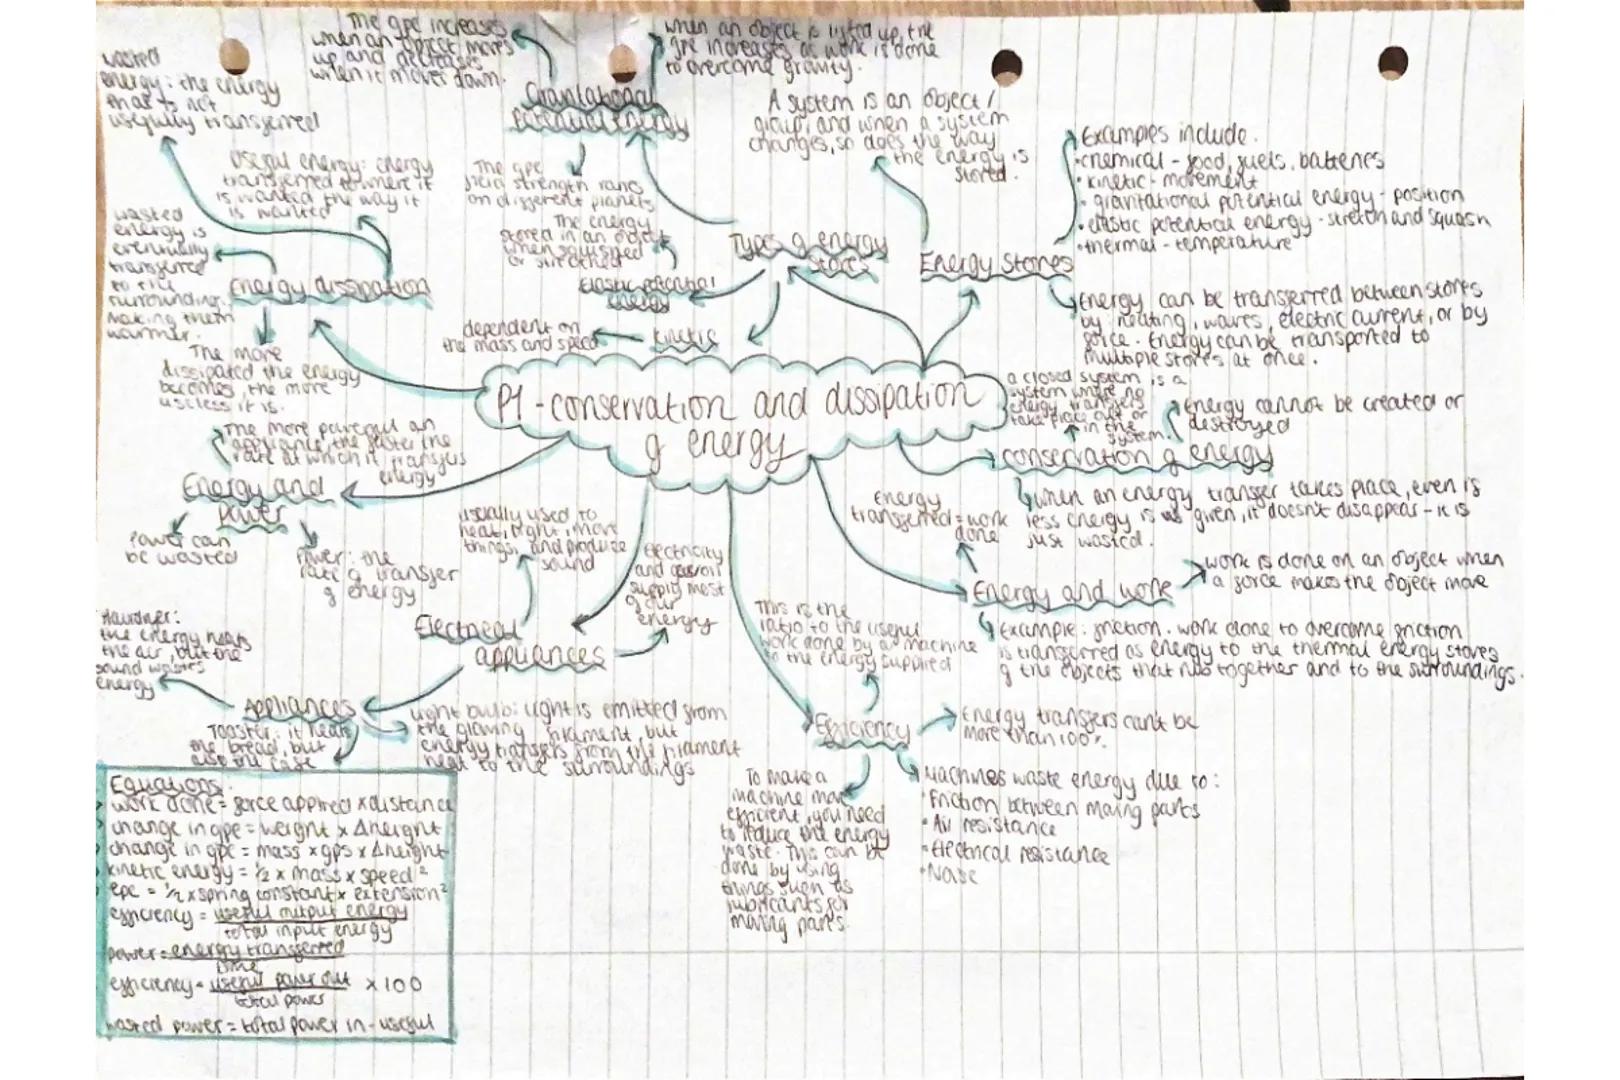 P1 - conservation and dissipation
of energy
The gpe increases
when an object moves
up and decreases
when it moves down.
when an object is lifted up, the
gpe increases as work is done
to overcome gravity.
Gravitational
potential energy
The gpe
field strength
on different planets
wasted
energy: the energy
that is not
usefully transferred
Useful energy: energy
transferred to where it
is wanted the way it
is wanted
wasted
energy is
eventually
transferred
to the
surroundings
making them
warmer.
Energy dissipation
The more
dissipated the energy
becomes, the more
useless it is.
The energy
stored in an object
when squished
or stretched
Elastic potential
energy
dependent on
the mass and speed
kinetic
Types of energy
stores
A system is an object /
group, and when a system
changes, so does the way
the energy is
stored.
Energy stores
Examples include.
• chemical - food, fuels, batteries
• kinetic - movement
• gravitational potential energy - position
• elastic potential energy - stretch and squash
• thermal - temperature
Energy can be transferred between stores
by: heating, waves, electric current, or by
force. Energy can be transported to
multiple stores at once.
a closed system is a
system where no
energy transfers
take place out or
in the
system.
Energy cannot be created or
destroyed
conservation of energy
when an energy transfer takes place, even is
less energy is given, it doesn't disappear - it is
just wasted.
The more powerful an
appliance, the faster the
rate at which it transfers
energy
Energy and
power
Power can
be wasted
Power: the
rate of transfer
of energy
usually used to
heat, light, move
things, and produce
sound
Electricity
and gas/oil
supply most
of our
energy
Electrical
appliances
Hairdryer:
the energy heats
the air, but the
sound wastes
energy
Appliances
Toaster: it heats
the bread, but
also the case
Light bulb: light is emitted from
the glowing filament, but
energy transfers from the filament
heat to the surroundings
Energy
transferred = work
done
Energy and work
work is done on an object when
a force makes the object move
Example: friction. work done to overcome friction
is transferred as energy to the thermal energy stores
of the objects that rub together and to the surroundings.
This is the
ratio to the useful
work done by a machine
to the energy supplied
Efficiency
Energy transfers can't be
more than 100%.
To make a
machine more
efficient, you need
to reduce the energy
waste. This can be
done by using
things such as
lubricants for
moving parts.
Machines waste energy due to:
• Friction between moving parts
• Air resistance
• Electrical resistance
• Noise
Equations:
work done = force applied x distance
change in gpe = weight x Δheight
change in gpe = mass x gfs x Δheight
kinetic energy = ½ x mass x speed²
epe = ½ x spring constant x extension²
efficiency = useful output energy
total input energy
power = energy transferred
time
efficiency = useful power out x 100
total power
wasted power = total power in - useful